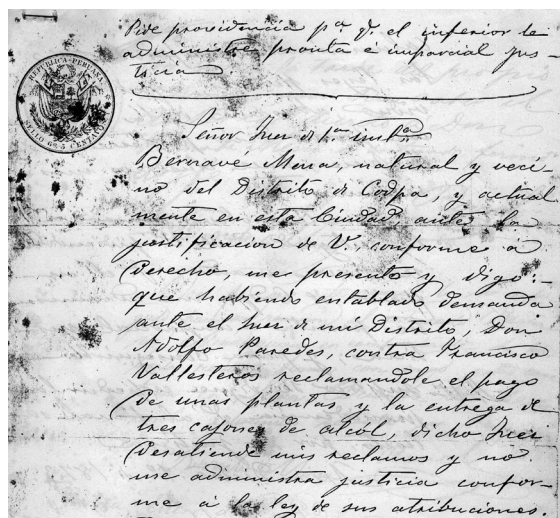 Pide providencia pª q. el inferior le
administre pronta é imparcial jus-
ticia
REPUBLICA PERUANA
SELLO 6º 5 CENTAVOS
Señor Juez de 1ª instª
Bernavé Mena, natural y veci-
no del Distrito de Codpa, y actual
mente en esta Ciudad ante la
justificacion de V., conforme á
derecho, me presento y digo:-
que habiendo entablado demanda
ante el Juez de mi Distrito, Don
Adolfo Paredes, contra Francisco
Vallesteros reclamandole el pago
de unas plantas y la entrega de
tres cajones de alcól, dicho Juez
desatiende mis reclamos y no
me administra justicia confor-
me á la ley de sus atribuciones.